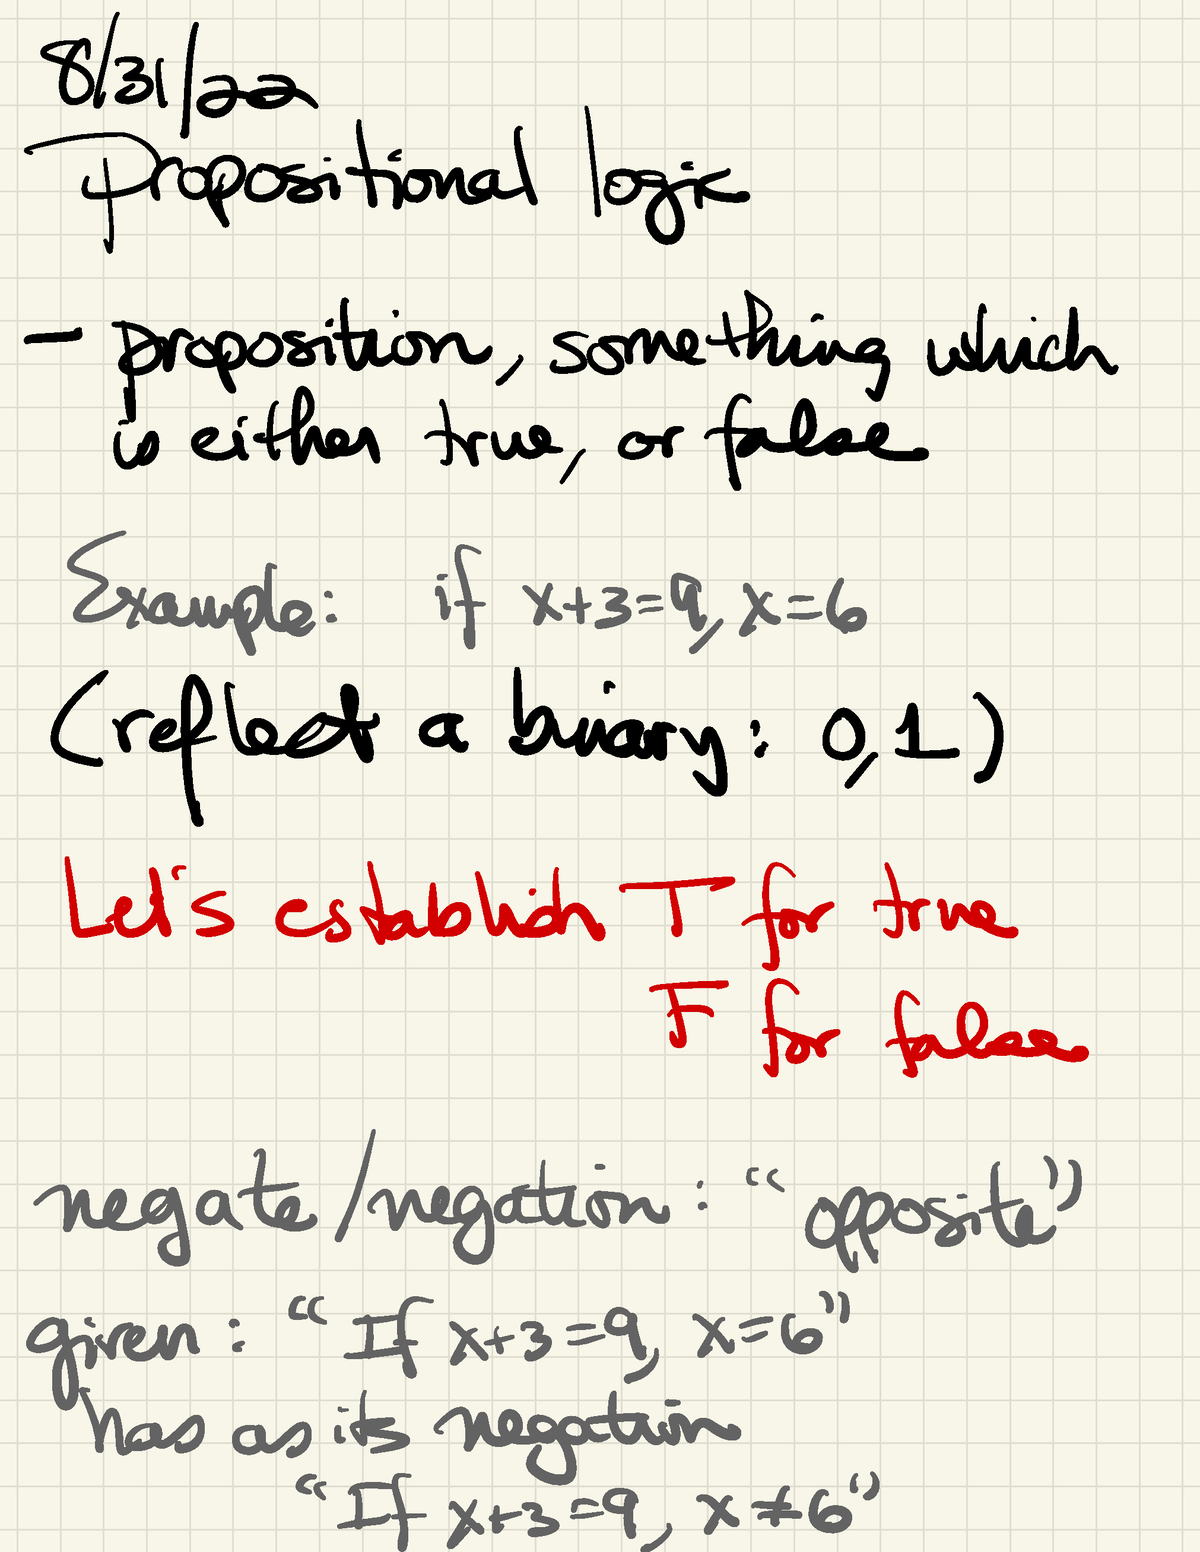 8/31/22
Propositional logic
- proposition, something which
is either true, or false
Example: if x+3=9, x=6
(reflect a binary: 0,1)
Let's establish T for true
F for false
negate/negation: "opposite"
given: "If x+3=9, x=6"
has as its negation
"If x+3=9, x≠6"